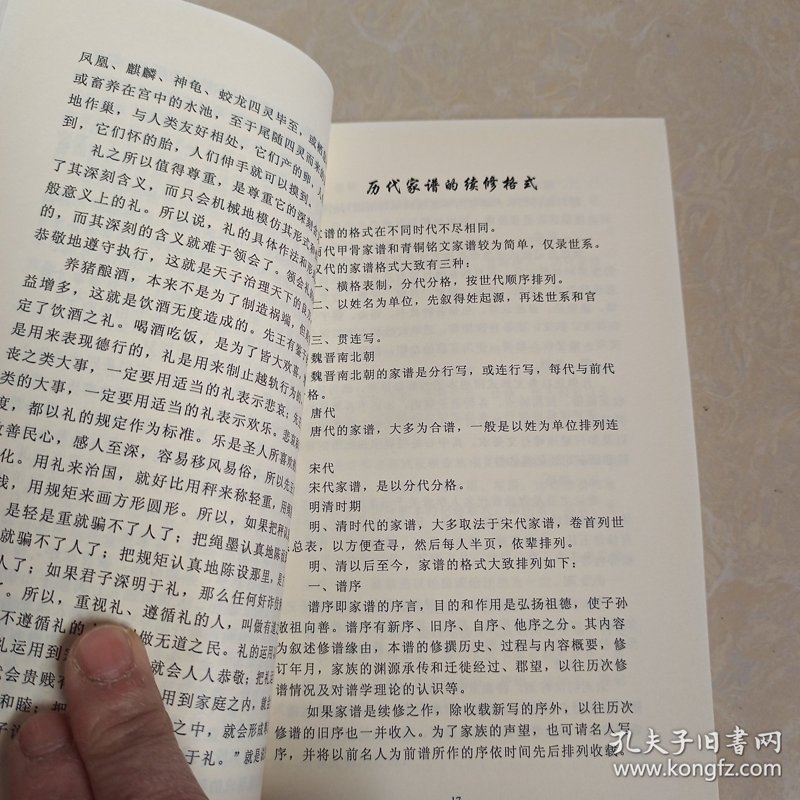 凤凰、麒麟、神龟、蛟龙四灵毕至，或栖息
或畜养在宫中的水池，至于尾随四灵而来的
地作巢，与人类友好相处，它们产的卵，人
到，它们怀的胎，人们伸手就可以摸到。
礼之所以值得尊重，是尊重它的深刻含
了其深刻含义，而只会机械地模仿其形式和
般意义上的礼。所以说，礼的具体作法和形
的，而其深刻的含义就难于领会了。领会礼的
恭敬地遵守执行，这就是天子治理天下的良方
养猪酿酒，本来不是为了制造祸端，但
益增多，这就是饮酒无度造成的。先王有鉴于
定了饮酒之礼。喝酒吃饭，是为了皆大欢喜，
是用来表现德行的，礼是用来制止越轨行为的
丧之类大事，一定要用适当的礼表示悲哀；有
类的大事，一定要用适当的礼表示欢乐。悲哀
度，都以礼的规定作为标准。乐是圣人所喜欢的
改善民心，感人至深，容易移风易俗，所以先王
化。用礼来治国，就好比用秤来称轻重，用绳
线，用规矩来画方形圆形。所以，如果把秤认真
是轻是重就骗不了人了；把绳墨认真地陈设
就骗不了人了；把规矩认真地陈设那里，是
人了；如果君子深明于礼，那么任何奸诈伎
了。所以，重视礼、遵循礼的人，叫做有道
不遵循礼的 叫做无道之民。礼的运用
礼运用到 就会人人恭敬；把礼
就会贵贱有 用到家庭之内，就会
和睦；把 之中，就会形成
子 于礼。”就是说
历代家谱的续修格式
家谱的格式在不同时代不尽相同。
商代甲骨家谱和青铜铭文家谱较为简单，仅录世系。
汉代的家谱格式大致有三种：
一、横格表制，分代分格，按世代顺序排列。
二、以姓名为单位，先叙得姓起源，再述世系和官
三、贯连写。
魏晋南北朝
魏晋南北朝的家谱是分行写，或连行写，每代与前代
格。
唐代
唐代的家谱，大多为合谱，一般是以姓为单位排列连
宋代
宋代家谱，是以分代分格。
明清时期
明、清时代的家谱，大多取法于宋代家谱，卷首列世
总表，以方便查寻，然后每人半页，依辈排列。
明、清以后至今，家谱的格式大致排列如下：
一、谱序
谱序即家谱的序言，目的和作用是弘扬祖德，使子孙
敬祖向善。谱序有新序、旧序、自序、他序之分。其内容
为叙述修谱缘由，本谱的修撰历史、过程与内容概要，修
订年月，家族的渊源承传和迁徙经过、郡望，以往历次修
谱情况及对谱学理论的认识等。
如果家谱是续修之作，除收载新写的序外，以往历次
修谱的旧序也一并收入。为了家族的声望，也可请名人写
序，并将以前名人为前谱所作的序依时间先后排列收载。
17
孔夫子旧书网
www.kongfz.com